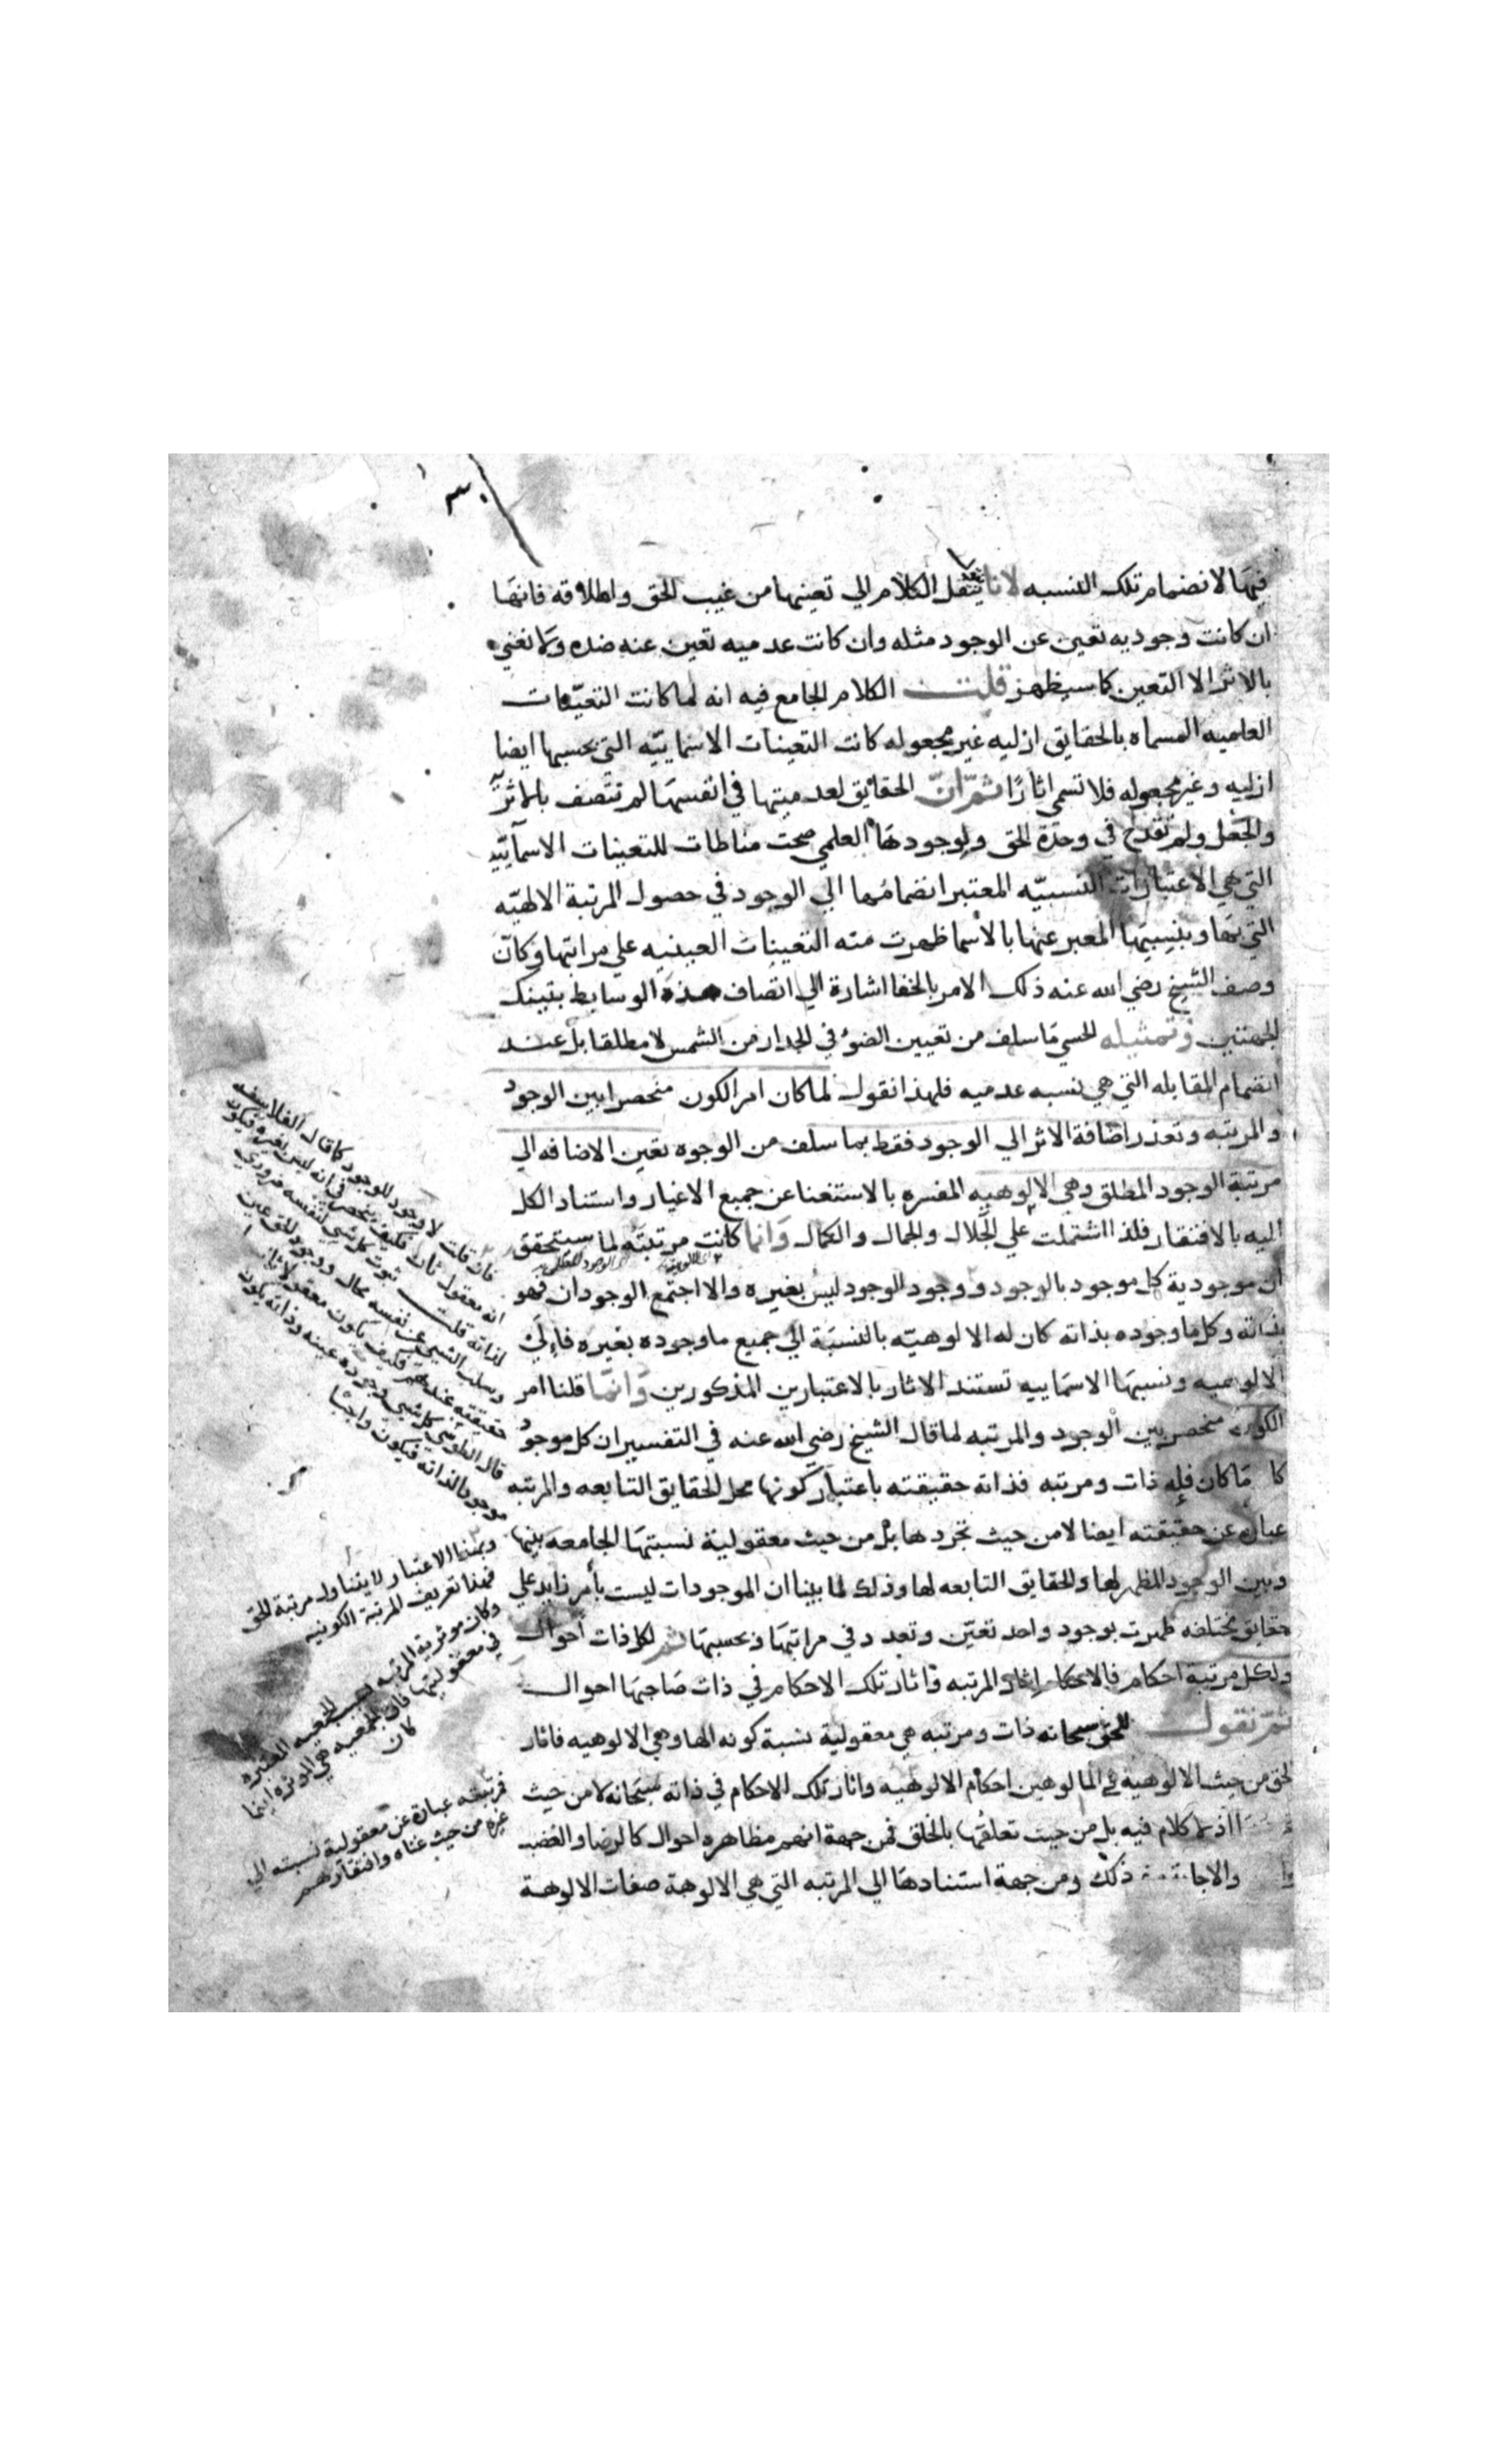 فيها لانضمام تلك النسبه لانا ننقل الكلام الي تعينها من غيب الحق واطلاقه فانها
ان كانت وجوديه تعين عن الوجود مثله وان كانت عدميه تعين عنه ضده ولا نعني
بالاثر الا التعين كما سيظهر قلت الكلام الجامع فيه انه لما كانت التعينات
العلميه المسماه بالحقايق ازليه غير مجعوله كانت التعينات الاسمايّيه التي بحسبها ايضا
ازليه وغير مجعوله فلا تسمي اثارًا ثم انّ الحقايق لعدميتها في انفسها لم تتصف بالماثرّ
والجعل ولم تقدح في وحدة الحق ولوجودها العلمي صحت مناطات للتعينات الاسمآييه
التي هي الاعتبارات النسبيّه المعتبر انضمامُها الي الوجود في حصول المرتبة الالهيّه
التي بها وبنسبتها المعبر عنها بالاسما ظهرت منه التعينات العينيه علي مراتبها وكانّ
وصف الشيخ رضي الله عنه ذلك الامر بالخفا اشارة الي اتصاف هذه الوسايط بتينك
الجهتين وتمثيله الحسي ما سلف من تعيين الضوء في الجدار من الشمس لا مطلقا بل عند
انضمام المقابله التي هي نسبه عدميه فلهذا نقول لما كان امر الكون منحصرا بين الوجود
والمرتبه وتعذر اضافة الاثر الي الوجود فقط بما سلف من الوجوه تعين الاضافه الي
مرتبة الوجود المطلق وهي الالوهيه المفسره بالاستغنا عن جميع الاغيار واستناد الكل
اليه بالافتقار فلذا اشتملت علي الجلال والجمال والكمال وانما كانت مرتبته لما سيتحقق
ان موجودية كل موجود بالوجود ووجود الوجود ليس بغيره والا اجتمع الوجودان فهو
بذاته وكل ما وجوده بذاته كان له الالوهيّه بالنسبة الي جميع ما وجوده بغيره فالي
الالوهيه ونسبها الاسماييه تستند الاثار بالاعتبارين المذكورين وانما قلنا امر
الكون منحصر بين الوجود والمرتبه لما قال الشيخ رضي الله عنه في التفسير ان كل موجود
ما كان فله ذات ومرتبه فذاته حقيقته باعتبار كونها محل الحقايق التابعه والمرتبه
عباره عن حقيقته ايضا لا من حيث تجردها بل من حيث معقولية نسبتها الجامعه بينها
وبين الوجود المظهر لها والحقايق التابعه لها وذلك لما بينا ان الموجودات ليست بأمر زايد علي
حقايق مختلفه ظهرت بوجود واحد تعيّن وتعدد في مراتبها وبحسبها ثم لكل ذات أحوال
ولكل مرتبة احكام فالاحكام اثار المرتبه واثار تلك الاحكام في ذات صاحبها احوال
ثم نقول للحق سبحانه ذات ومرتبه هي معقولية نسبة كونه الها وهي الالوهيه فاثار
الحق من حيث الالوهية في المالوهين احكام الالوهيه واثار تلك الاحكام في ذاته سبحانه لا من حيث
اذ لا كلام فيه بل من حيث تعلقها بالخلق فمن جهة انهم مظاهره احوال كالرضا والغضب
ذلك ومن جهة استنادها الي المرتبه التي هي الالوهية صفات الالوهة
فان قلت لا وجود للوجود كما قال الفلاسفه
انه معقول ثان فكيف ينحصر في انه ليس بغيره فيكون
لذاته قلت ثبوت كل شي لنفسه ضروري
وسلب الشيي عن نفسه محال ووجود الحق عين
حقيقته عندهم فكيف يكون معقولا ثانيا
قال الطوسي كل شيي وجوده عينه وذاته يكون
موجودا لذاته فيكون واجبًا
وبهذا الاعتبار لا يتناول مرتبة الحق
فهذا تعريف المرتبة الكونيه
وكان موثرية المرتبه بحسب الجمعيه المعتبره
في معقوليتها فان الجمعيه هي الموثره اينما
كان
فمرتبته عبارة عن معقولية نسبته الي
غيره من حيث غناه وافتقارهم